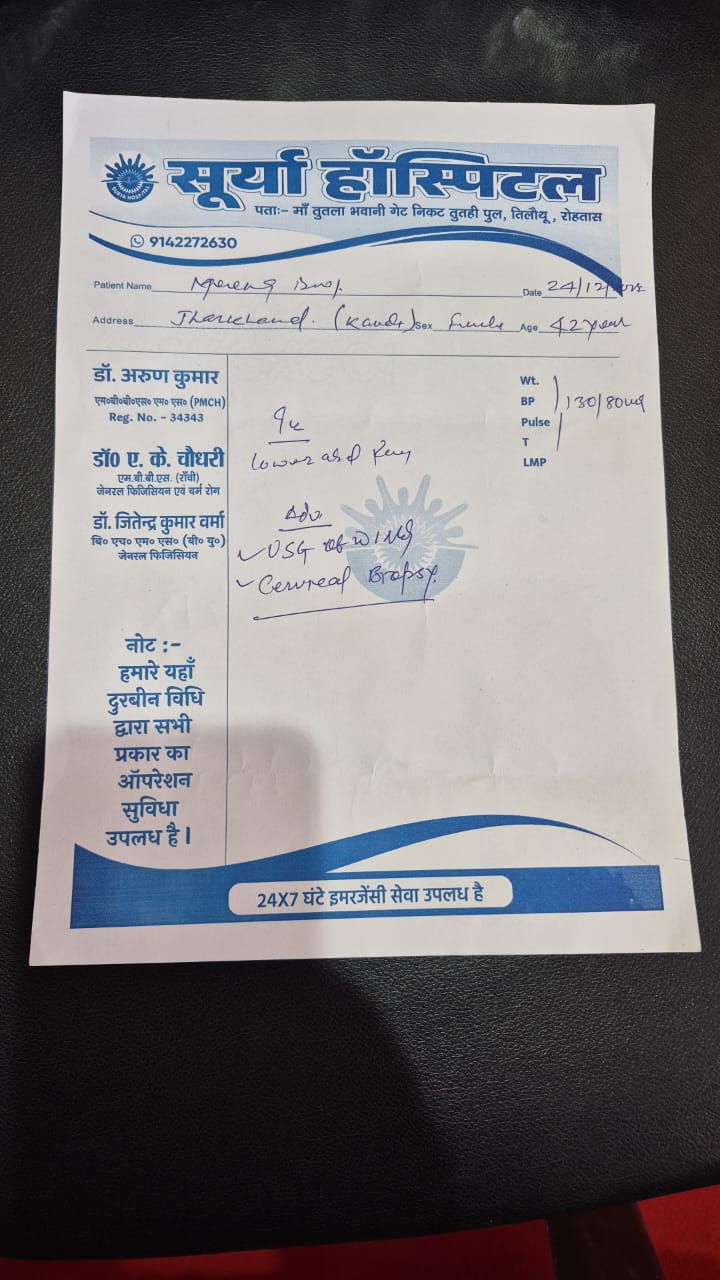 सूर्या हॉस्पिटल
SURYA HOSPITAL
पताः- माँ तुतला भवानी गेट निकट तुतही पुल, तिलौथू , रोहतास
9142272630
Patient Name
Date 24/12/
Address Jharkhand. Sex Female Age 42 year
डॉ. अरुण कुमार
एम०बी०बी०एस० एम० एस० (PMCH)
Reg. No. - 34343
डॉ० ए. के. चौधरी
एम.बी.बी.एस. (राँची)
जेनरल फिजिसियन एवं चर्म रोग
डॉ. जितेन्द्र कुमार वर्मा
बि० एच० एम० एस० (बी० यु०)
जेनरल फिजिसियन
नोट :-
हमारे यहाँ
दुरबीन विधि
द्वारा सभी
प्रकार का
ऑपरेशन
सुविधा
उपलध है।
Wt.
BP 130/80
Pulse
T
LMP
Lower abd Pain
Adv
USG of
Cervical Biopsy.
24X7 घंटे इमरजेंसी सेवा उपलध है